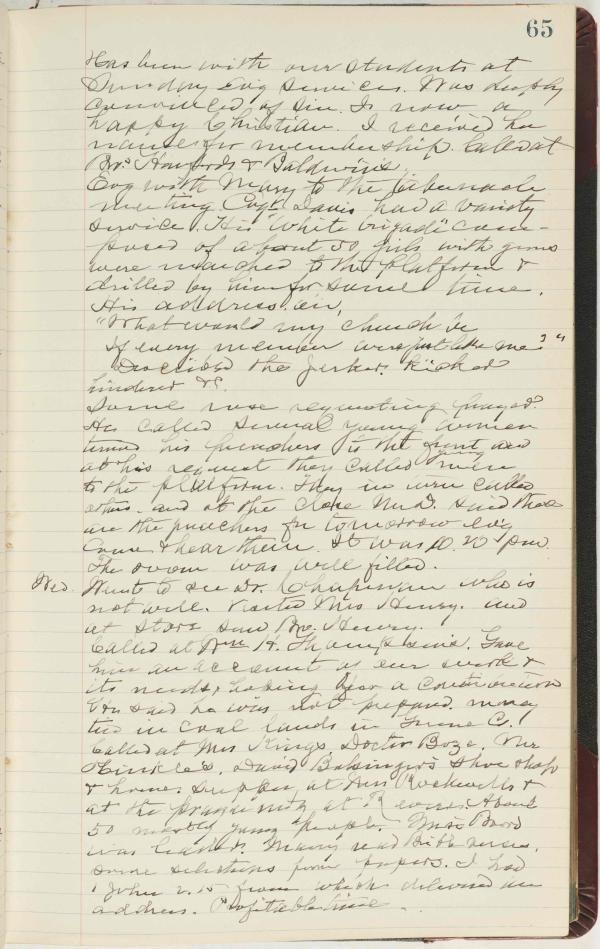 65
Has been with our students at
Sunday Evg services. Was deeply
convinced of sin. Is now a
happy Christian. I received her
name for membership. Called at
Bro's Howards & Baldwins.
Evg with Mary to the tabernacle
meeting Capt Davis had a variety
service. His "White brigade" com-
posed of about 50 girls with guns
were marched to the platform &
drilled by him for some time.
His address on,
"What would my church be
If every member were just like me?"
Described the jerker, kicker
hinderer &c.
Some rose requesting prayer.
He called several young women
his preachers to the front and
at his request they called men
to the platform. They in were called
others. and at the close Mr D. said these
are the preachers for tomorrow evg
Come & hear them. It was 10.20 pm.
The room was well filled.
Wed. Went to see Dr. Chapman who is
not well. Visited Mrs Henry. and
at store saw Bro. Henry.
Called at Wm H. Thompsons. Gave
him an account of our work &
its needs, hoping for a contribution
He said he was not prepared. money
tied in coal lands in Greene C.
Called at Mrs Kings, Doctor Boze, Mr
Hinkles, David Balsingers Shoe shop
& home. Supper at Mrs Rockwells &
at the meeting at About
50 mostly young people. Miss Board
was leader. Mary read Bible verses.
some selections from papers. I had
1 John 2.15 from which delivered an
address. Profitable time.